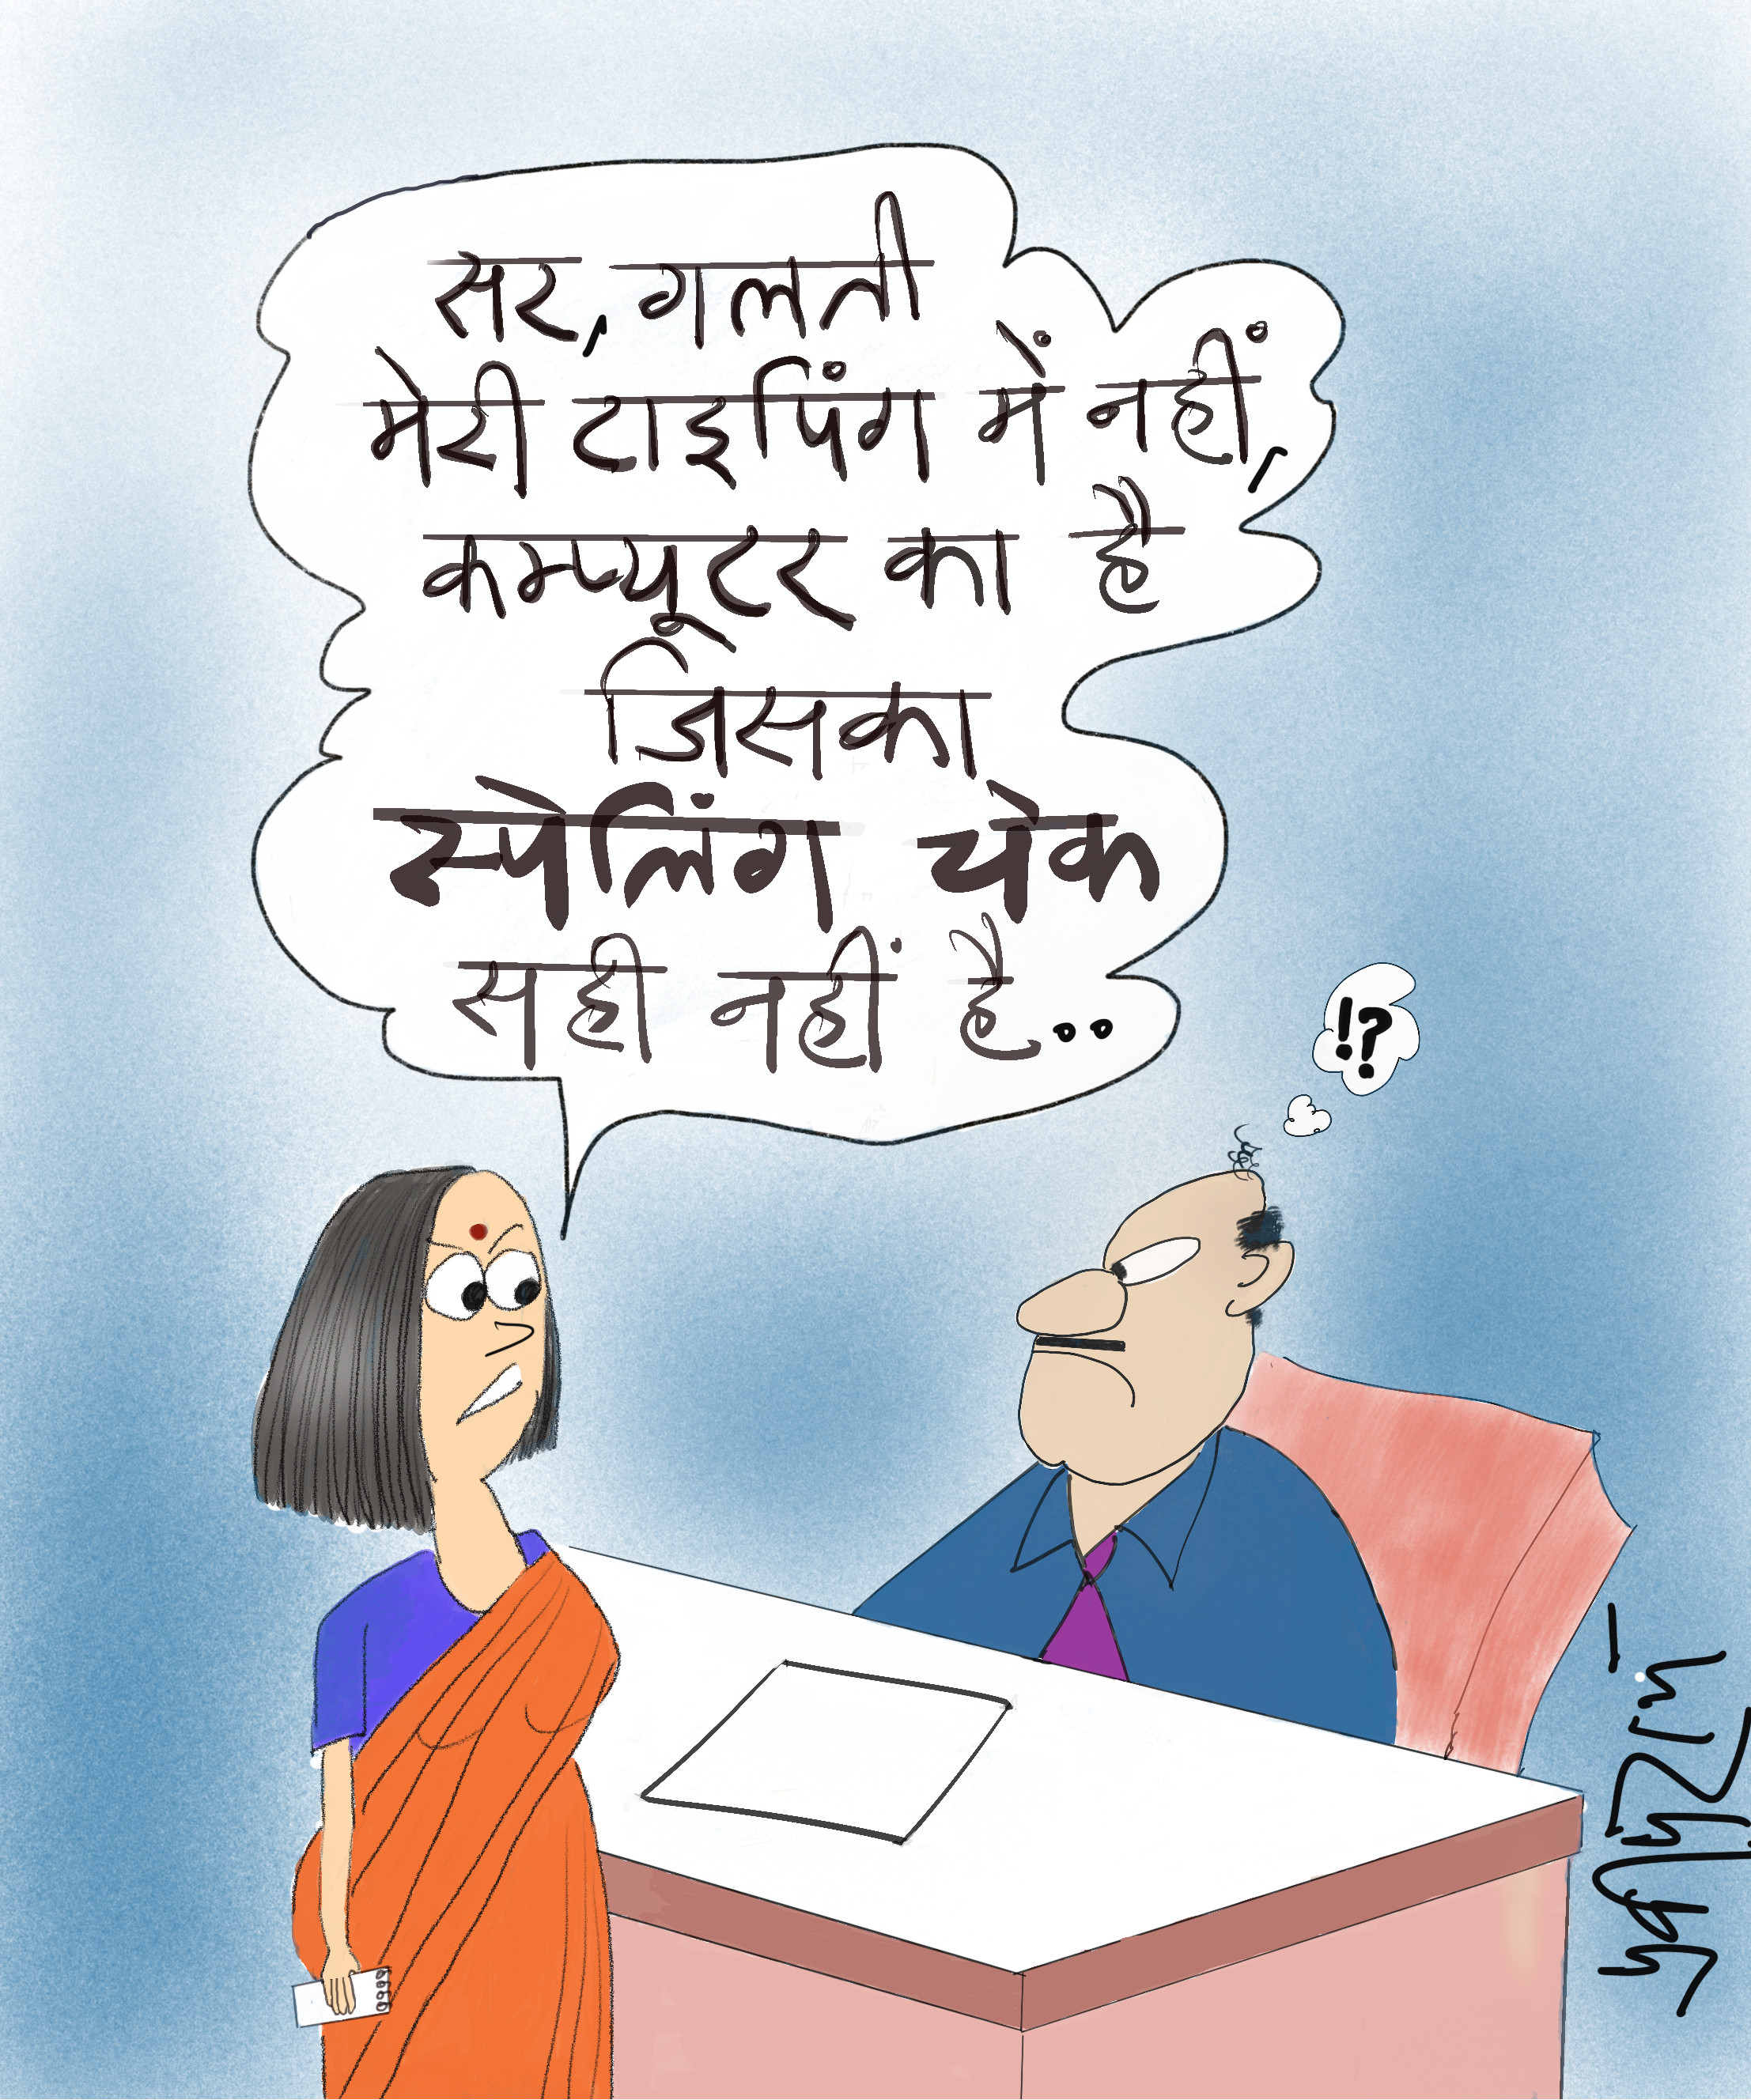 सर, गलती
मेरी टाइपिंग में नहीं,
कम्प्यूटर का है
जिसका
स्पेलिंग चेक
सही नहीं है..
!?